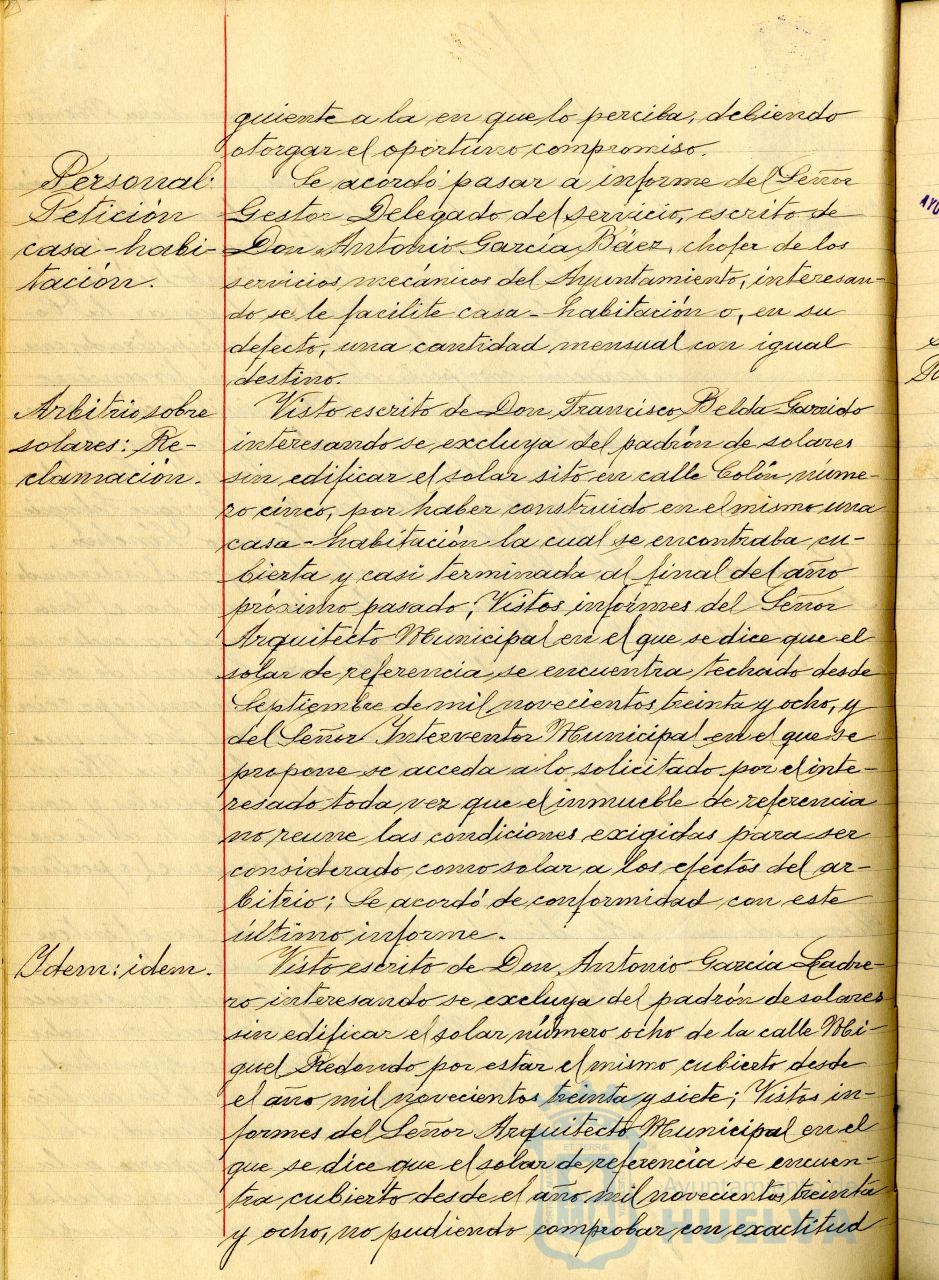 guiente a la en que lo perciba, debiendo
otorgar el oportuno compromiso.
Personal:
Petición
casa-habi-
tación.
Se acordó pasar a informe del Señor
Gestor Delegado del servicio, escrito de
Don Antonio García Báez, chofer de los
servicios mecánicos del Ayuntamiento, interesan-
do se le facilite casa-habitación o, en su
defecto, una cantidad mensual con igual
destino.
Arbitrio sobre
solares: Re-
clamación.
Visto escrito de Don Francisco Belda Garrido
interesando se excluya del padrón de solares
sin edificar el solar sito en calle Colón núme-
ro cinco, por haber construido en el mismo una
casa-habitación la cual se encontraba cu-
bierta y casi terminada al final del año
próximo pasado; Vistos informes del Señor
Arquitecto Municipal en el que se dice que el
solar de referencia se encuentra techado desde
Septiembre de mil novecientos treinta y ocho, y
del Señor Interventor Municipal en el que se
propone se acceda a lo solicitado por el inte-
resado toda vez que el inmueble de referencia
no reune las condiciones exigidas para ser
considerado como solar a los efectos del ar-
bitrio; Se acordó de conformidad con este
último informe.
Idem: idem.
Visto escrito de Don Antonio García Ladre-
ro interesando se excluya del padrón de solares
sin edificar el solar número ocho de la calle Mi-
guel Redondo por estar el mismo cubierto desde
el año mil novecientos treinta y siete; Vistos in-
formes del Señor Arquitecto Municipal en el
que se dice que el solar de referencia se encuen-
tra cubierto desde el año mil novecientos treinta
y ocho, no pudiendo comprobar con exactitud
Ayuntamiento de
HUELVA